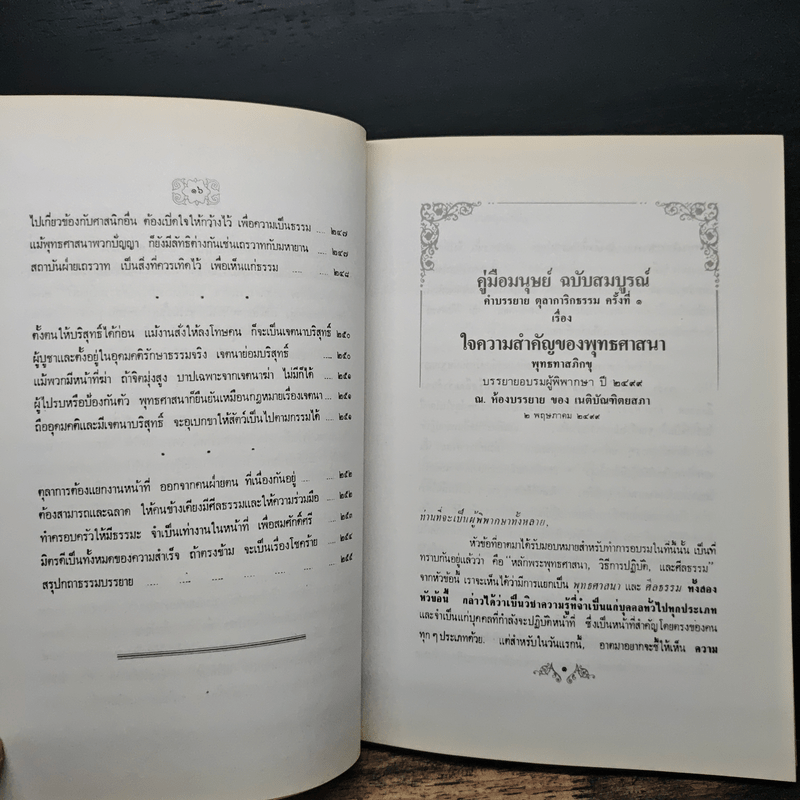 ๑๖
ไปเกี่ยวข้องกับศาสนิกอื่น ต้องเปิดใจให้กว้างไว้ เพื่อความเป็นธรรม .... ๒๔๗
แม้พุทธศาสนาพวกปัญญา ก็ยังมีลัทธิต่างกันเช่นเถรวาทกับมหายาน .... ๒๔๗
สถาบันฝ่ายเถรวาท เป็นสิ่งที่ควรเทิดไว้ เพื่อเห็นแก่ธรรม .... .... ๒๔๘
* * *
ตั้งตนให้บริสุทธิ์ได้ก่อน แม้งานสั่งให้ลงโทษคน ก็จะเป็นเจตนาบริสุทธิ์ ๒๕๐
ผู้บูชาและตั้งอยู่ในอุดมคติรักษาธรรมจริง เจตนาย่อมบริสุทธิ์ .... ๒๕๐
แม้พวกมีหน้าที่ฆ่า ถ้าจิตมุ่งสูง บาปเฉพาะจากเจตนาฆ่า ไม่มีก็ได้ .... ๒๕๑
ผู้ไปรบหรือป้องกันตัว พุทธศาสนาก็ยืนยันเหมือนกฎหมายเรื่องเจตนา ๒๕๑
ถืออุดมคติและมีเจตนาบริสุทธิ์ จะอุเบกขาให้สัตว์เป็นไปตามกรรมได้ .... ๒๕๑
* * *
ตุลาการต้องแยกงานหน้าที่ ออกจากคนฝ่ายตน ที่เนื่องกันอยู่ .... ๒๕๒
ต้องสามารถและฉลาด ให้คนข้างเคียงมีศีลธรรมและให้ความร่วมมือ .... ๒๕๒
ทำครอบครัวให้มีธรรมะ จำเป็นเท่างานในหน้าที่ เพื่อสมศักดิ์ศรี .... ๒๕๓
มิตรดีเป็นทั้งหมดของความสำเร็จ ถ้าตรงข้าม จะเป็นเรื่องโชคร้าย .... ๒๕๔
สรุปกถาธรรมบรรยาย .... .... .... .... .... ๒๕๕
คู่มือมนุษย์ ฉบับสมบูรณ์
คำบรรยาย ตุลาการิกธรรม ครั้งที่ ๑
เรื่อง
ใจความสำคัญของพุทธศาสนา
พุทธทาสภิกขุ
บรรยายอบรมผู้พิพากษา ปี ๒๔๙๙
ณ. ห้องบรรยาย ของ เนติบัณฑิตยสภา
๒ พฤษภาคม ๒๔๙๙
ท่านที่จะเป็นผู้พิพากษาทั้งหลาย,
หัวข้อที่อาตมาได้รับมอบหมายสำหรับทำการอบรมในที่นี้นั้น เป็นที่
ทราบกันอยู่แล้วว่า คือ "หลักพระพุทธศาสนา, วิธีการปฏิบัติ, และศีลธรรม"
จากหัวข้อนี้ เราจะเห็นได้ว่ามีการแยกเป็น พุทธศาสนา และ ศีลธรรม ทั้งสอง
หัวข้อนี้ กล่าวได้ว่าเป็นวิชาความรู้ที่จำเป็นแก่บุคคลทั่วไปทุกประเภท
และจำเป็นแก่บุคคลที่กำลังจะปฏิบัติหน้าที่ ซึ่งเป็นหน้าที่สำคัญโดยตรงของคน
ทุก ๆ ประเภทด้วย. แต่สำหรับในวันแรกนี้, อาตมาอยากจะชี้ให้เห็น ความ
๑